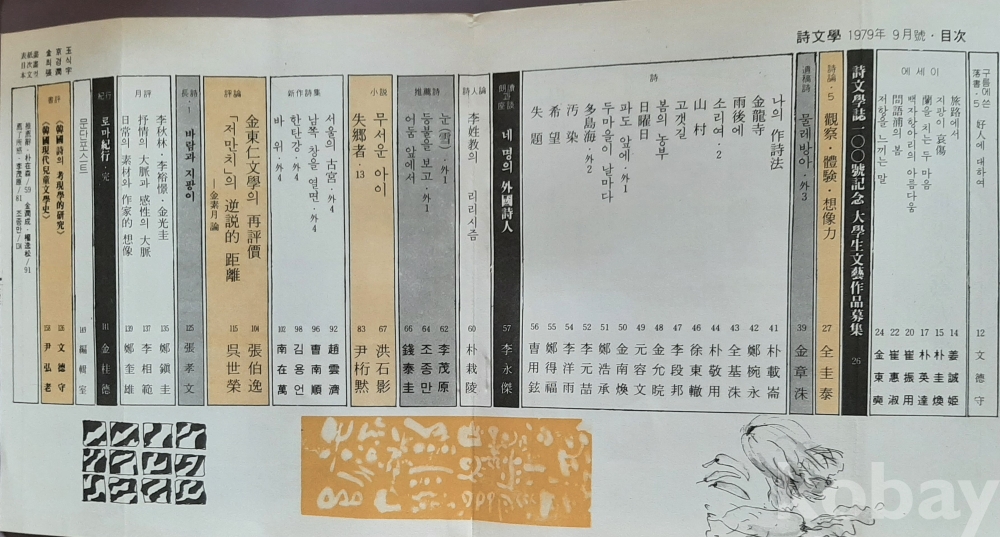 詩文學 1979年 9月號・目次
구름에쓴 落書・5 好人에 대하여 12 文德守
에세이
旅路에서 14 姜誠姫
지팡이의 哀傷 15 朴圭煥
蘭을 치는 두 마음 17 朴英達
백자항아리의 아름다움 20 崔振用
問語浦의 봄 22 崔惠淑
저항을 느끼는 말 24 金東奭
詩文學誌 一〇〇號記念 大學生文藝作品募集 26
詩論・5 觀察・體驗・想像力 27 全圭泰
遺稿詩 물레방아・外3 39 金章洙
詩
나의 作詩法 41 朴載崙
金龍寺 42 鄭椀永
雨後에 43 全基洙
소리여・2 44 朴敬用
山村 46 徐東轍
고갯길 47 李段邦
봄의 농부 48 金允晥
日曜日 49 元容文
파도 앞에・外1 50 金南煥
두마을이 날마다 51 鄭浩承
多島海・外2 52 李元喆
汚染 54 李洋雨
希望 55 鄭得福
失題 56 曺用鉉
朗讀과 座談 네 명의 外國詩人 57 李永傑
詩人論 李姓敎의 리리시즘 60 朴栽陵
推薦詩
눈(雪)・外1 62 李茂原
등불을 보고・外1 64 조증만
어둠 앞에서 66 錢泰圭
小説
무서운 아이 67 洪石影
失鄕者・13 83 尹桁黙
新作詩集
서울의 古宮・外4 92 趙雲濟
남쪽 창을 열면・外4 96 曺南順
한탄강・外4 98 김용언
바위・外4 102 南在萬
評論
金東仁文學의 再評價 104 張伯逸
「저만치」의 逆說的 距離 ―金素月論 115 呉世榮
長詩・1 바람과 지팡이 125 張孝文
月評
李秋林・李裕憬・金光圭 135 鄭鎭圭
抒情의 大脈과 感性의 大脈 137 李相範
日常의 素材와 作家的 想像 139 鄭奎雄
紀行 로마紀行 完 101 金桂德
문단포스트 149 編輯室
書評
《韓國詩의 考現學的硏究》 156 文德守
《韓國現代兒童文學史》 158 尹弘老
推薦辭・朴在森/59 金潤成・權逸松/91
薦了所感・李茂原/61 조증만/138
表紙畫 김경우
Kobay